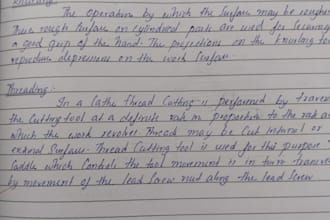 Knurling:
The operation by which the Surface may be
This rough Surface on cylindrical parts are used for
a good grip of the hand. The projections on the knurling
reproduce depression on the work Surface.
Threading:-
In a lathe thread Cutting is performed by
the Cutting tool at a definite in proportion to the
which the work revolves thread may be Cut internal or
external Surface. Thread Cutting tool is used for this purpose
Saddle which Controls the tool movement is in turn
by movement of the lead Screw nut along the lead Screw